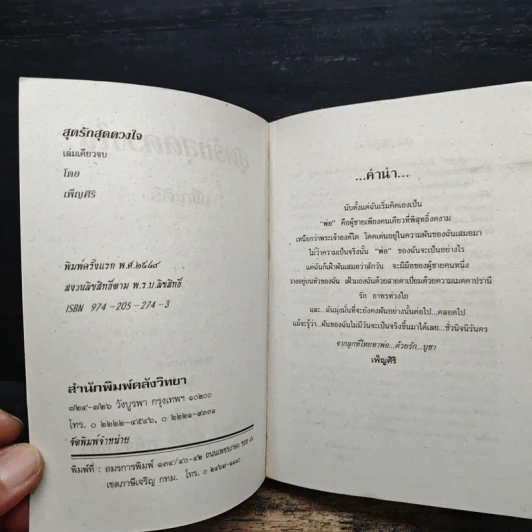 สุดรักสุดดวงใจ
เล่มเดียวจบ
โดย
เพ็ญศิริ
พิมพ์ครั้งแรก พ.ศ.๒๕๔๘
สงวนลิขสิทธิ์ตาม พ.ร.บ.ลิขสิทธิ์
ISBN 974-205-274-3
สำนักพิมพ์คลังวิทยา
๗๒๔-๗๒๖ วังบูรพา กรุงเทพฯ ๑๐๒๐๐
โทร. ๐ ๒๒๒๒-๔๕๔๖, ๐ ๒๒๒๑-๙๓๓๑
จัดพิมพ์จำหน่าย
พิมพ์ที่ : อมรการพิมพ์ ๑๓๔/๔๐-๔๒ ถนนเพชรเกษม
เขตภาษีเจริญ กทม. โทร. ๐
...คำนำ...
นับตั้งแต่ฉันเริ่มคิดเองเป็น
"พ่อ" คือผู้ชายเพียงคนเดียวที่พิสุทธิ์งดงาม
เหนือกว่าพระเจ้าองค์ใด โดดเด่นอยู่ในความฝันของฉันเสมอมา
ไม่ว่าความเป็นจริงนั้น "พ่อ" ของฉันจะเป็นอย่างไร
แต่ฉันก็เฝ้าฝันเสมอว่าสักวัน จะมีมือของผู้ชายคนหนึ่ง
วางอยู่บนหัวของฉัน เฝ้ามองฉันด้วยสายตาเปี่ยมด้วยความเมตตาปรานี
รัก อาทรห่วงใย
และ...ฉันมุ่งมั่นที่จะยังคงฝันอย่างนั้นต่อไป...ตลอดไป
แม้จะรู้ว่า...ฝันของฉันไม่มีวันจะเป็นจริงขึ้นมาได้เลย...ชั่วนิจนิรันดร
จากลูกที่โหยหาพ่อ...ด้วยรัก...บูชา
เพ็ญศิริ